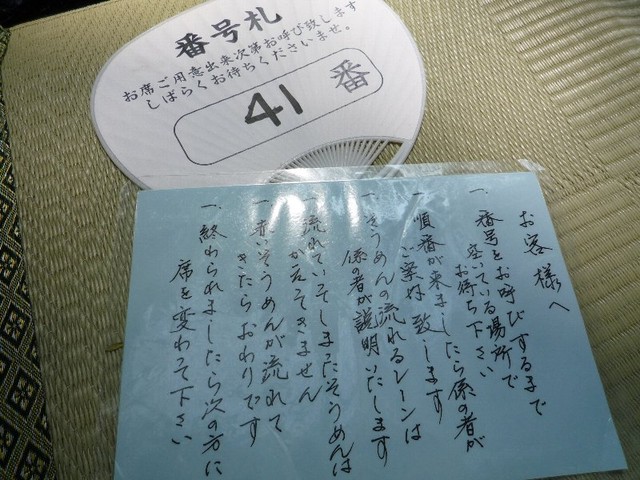 番号札
お席ご用意出来次第お呼び致します
しばらくお待ちくださいませ。
41 番
お客様へ
一、番号をお呼びするまで
座っている場所で
お待ち下さい
一、順番が来ましたら係の者が
ご案内致します
一、そうめんの流れるレーンは
係の者が説明いたします
一、流れていってしまったそうめんは
かえってきません
一、赤いそうめんが流れて
きたらおわりです
一、終わられましたら次の方に
席を変わって下さい